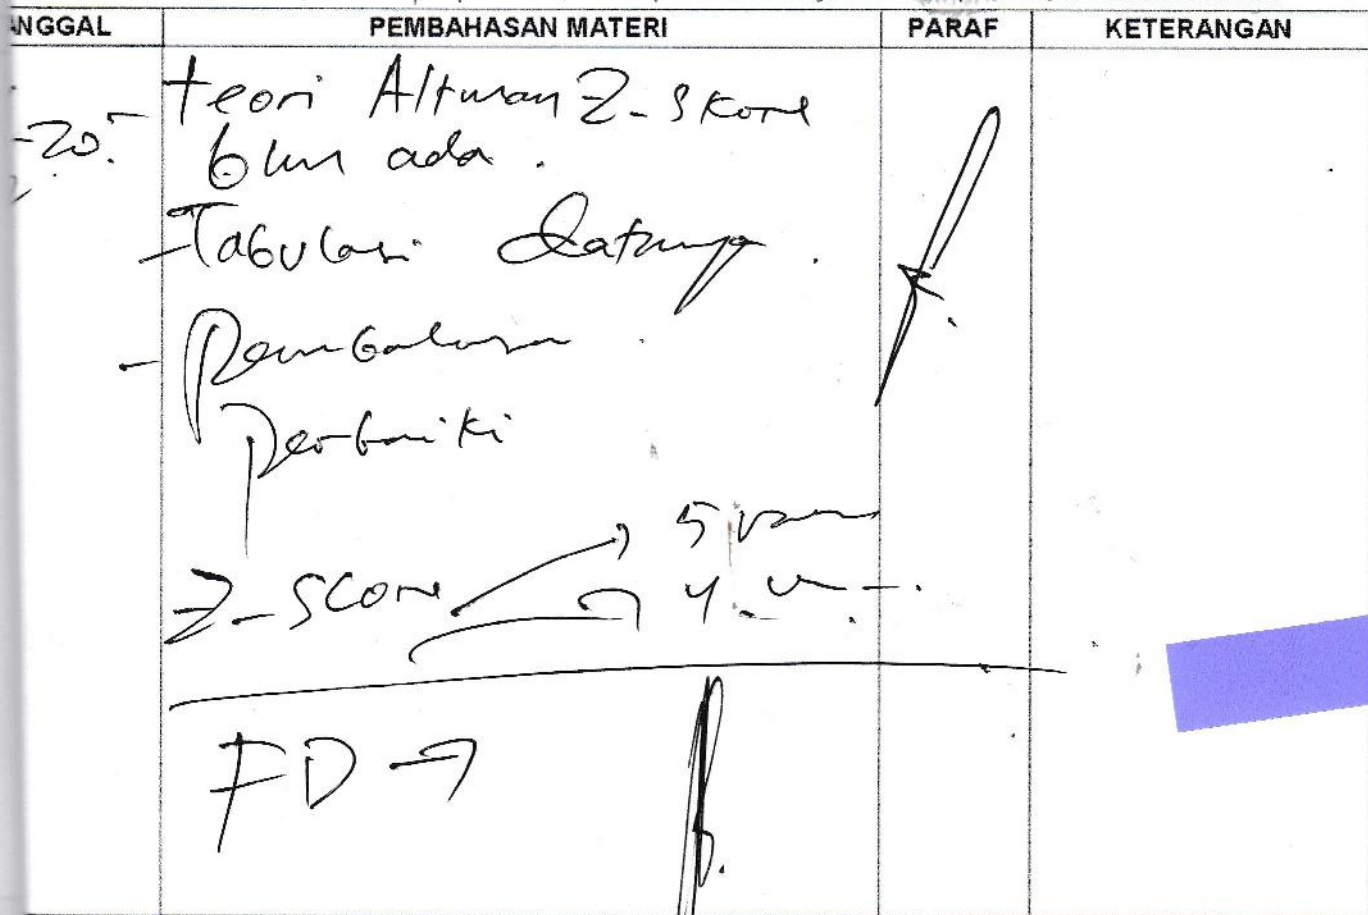 NGGAL PEMBAHASAN MATERI PARAF KETERANGAN
teori Altman Z-Skore
-20. blm ada.
- Tabulasi datanya.
- Pembahasan
perbaiki
Z-Score → 5
→ 4
FD →